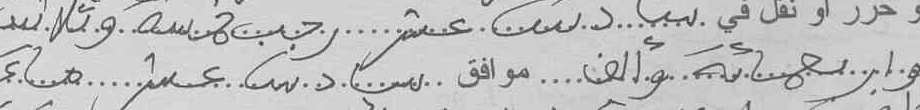 و حرر او نقل في سادس عشر رجب خمسة وثلاثين
و اربعمائة وألف موافق سادس عشر ماي